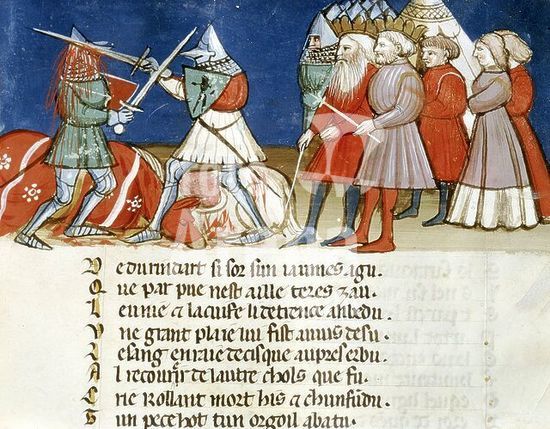 D e durindart si sor sun iaumes agu.
Q ue par pue nest aille teres zau.
L eume & la cuffe li detrence anbedu.
V ne grant plaie lui fist desu.
L e sang en raie decisque au pres erbu.
A l recourir de lautre chols que fu.
ne rollant mort his & chunfundu.
un pece hot tun orgoil abatu.